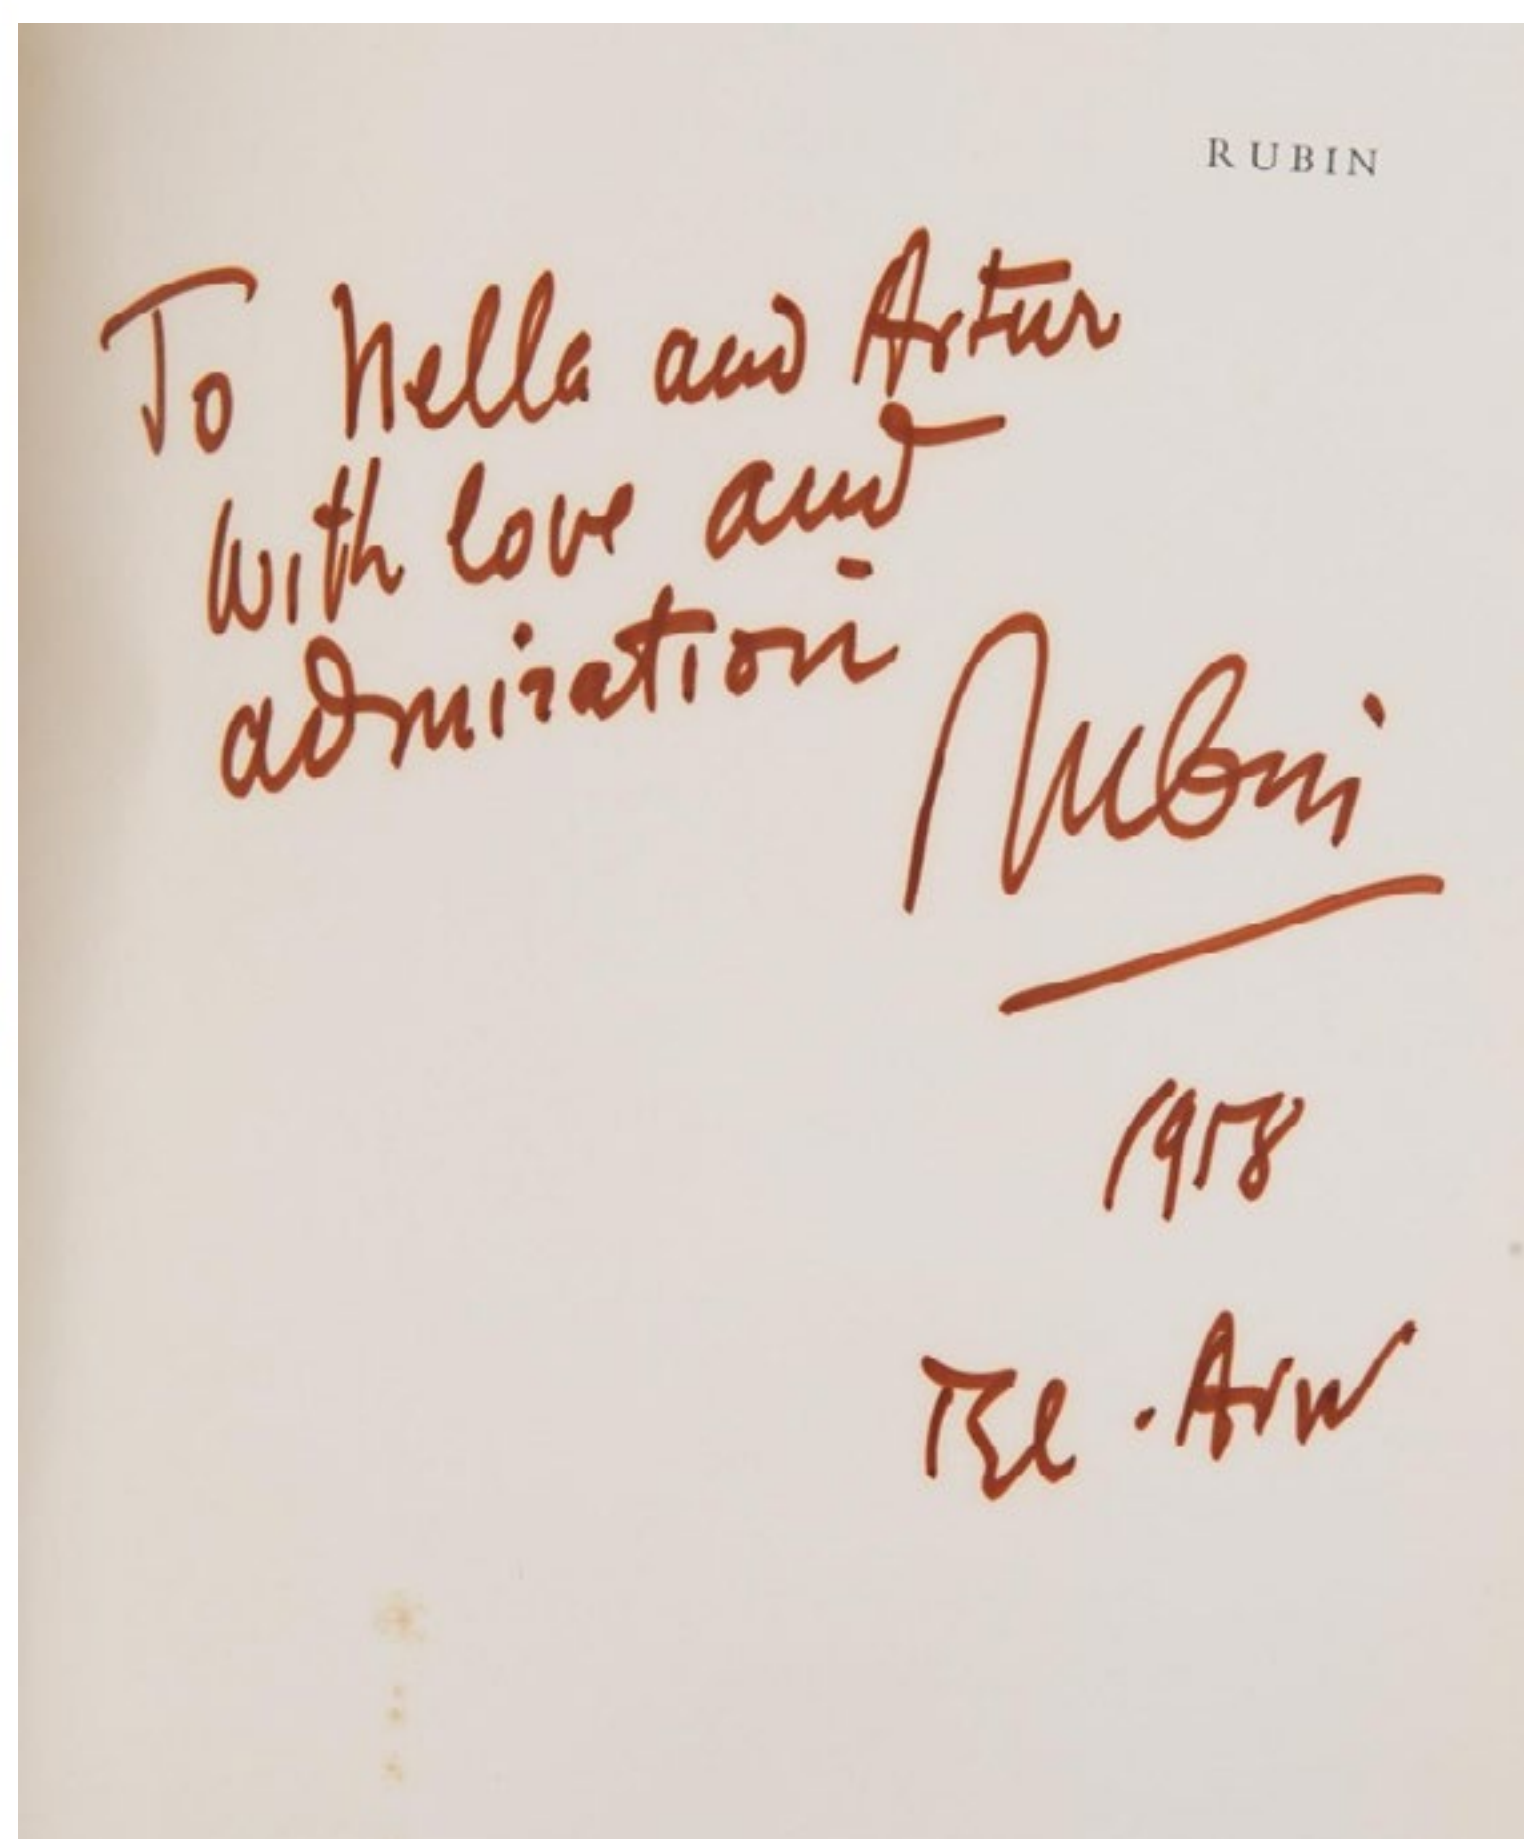 RUBIN
To Nella and Artur
with love and
admiration
Rubin
1958
Tel. Aviv